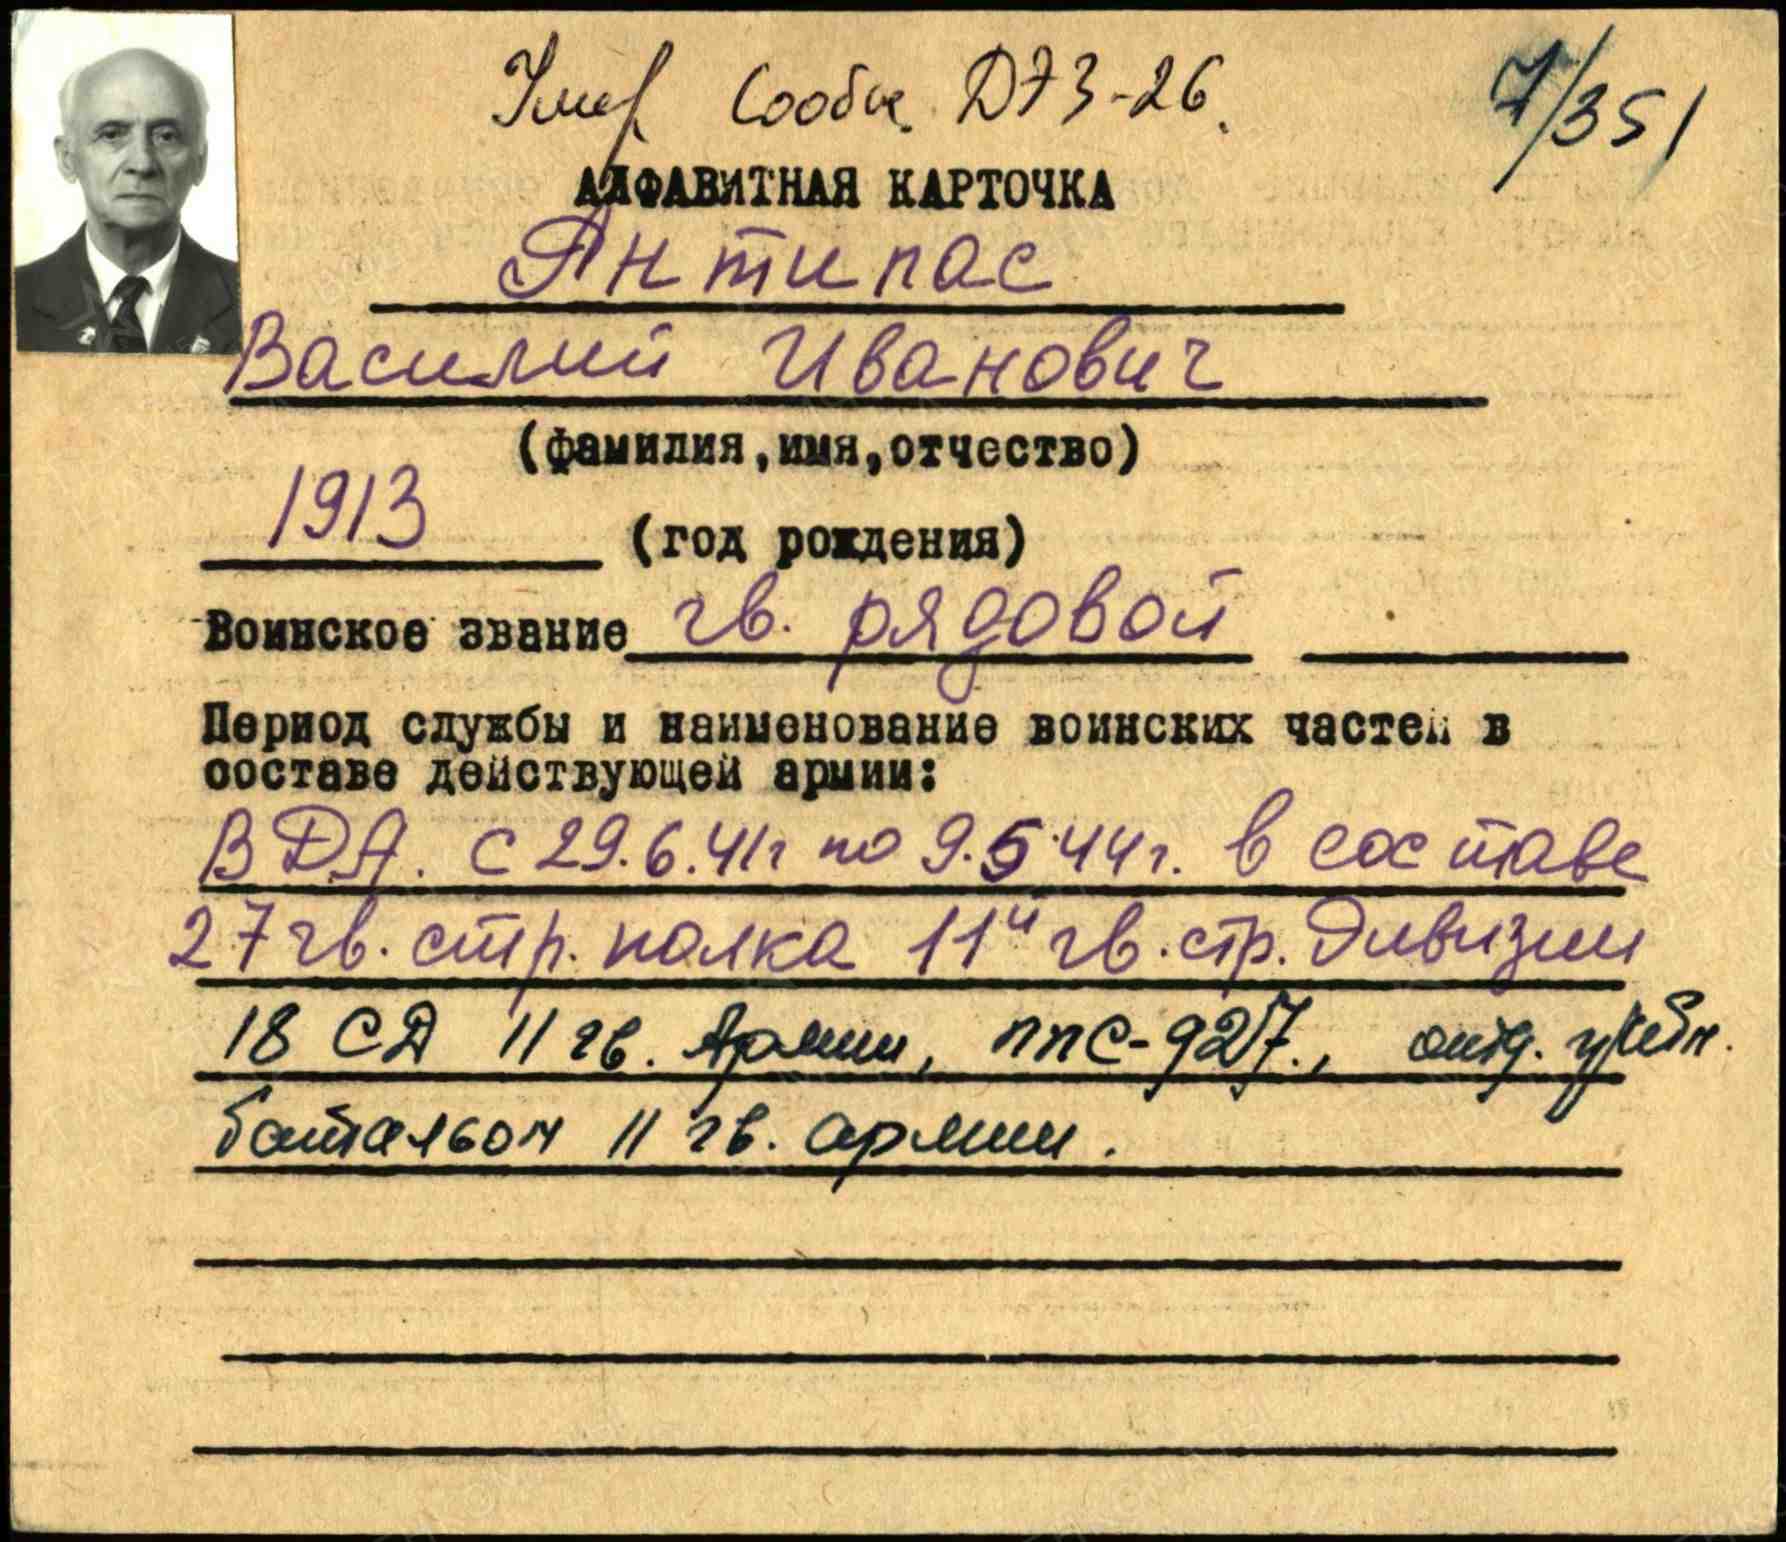 Умер Сообщ. Д73-26.
7/351
АЛФАВИТНАЯ КАРТОЧКА
Антипас
Василий Иванович
(фамилия, имя, отчество)
1913 (год рождения)
Воинское звание гв. рядовой
Период службы и наименование воинских частей в
составе действующей армии:
В ДА. с 29.6.41г по 9.5.44г. в составе
27 гв. стр. полка 11й гв. стр. дивизии
18 СД 11 гв. Армии, ппс-927., отд. учебн.
батальон 11 гв. армии.